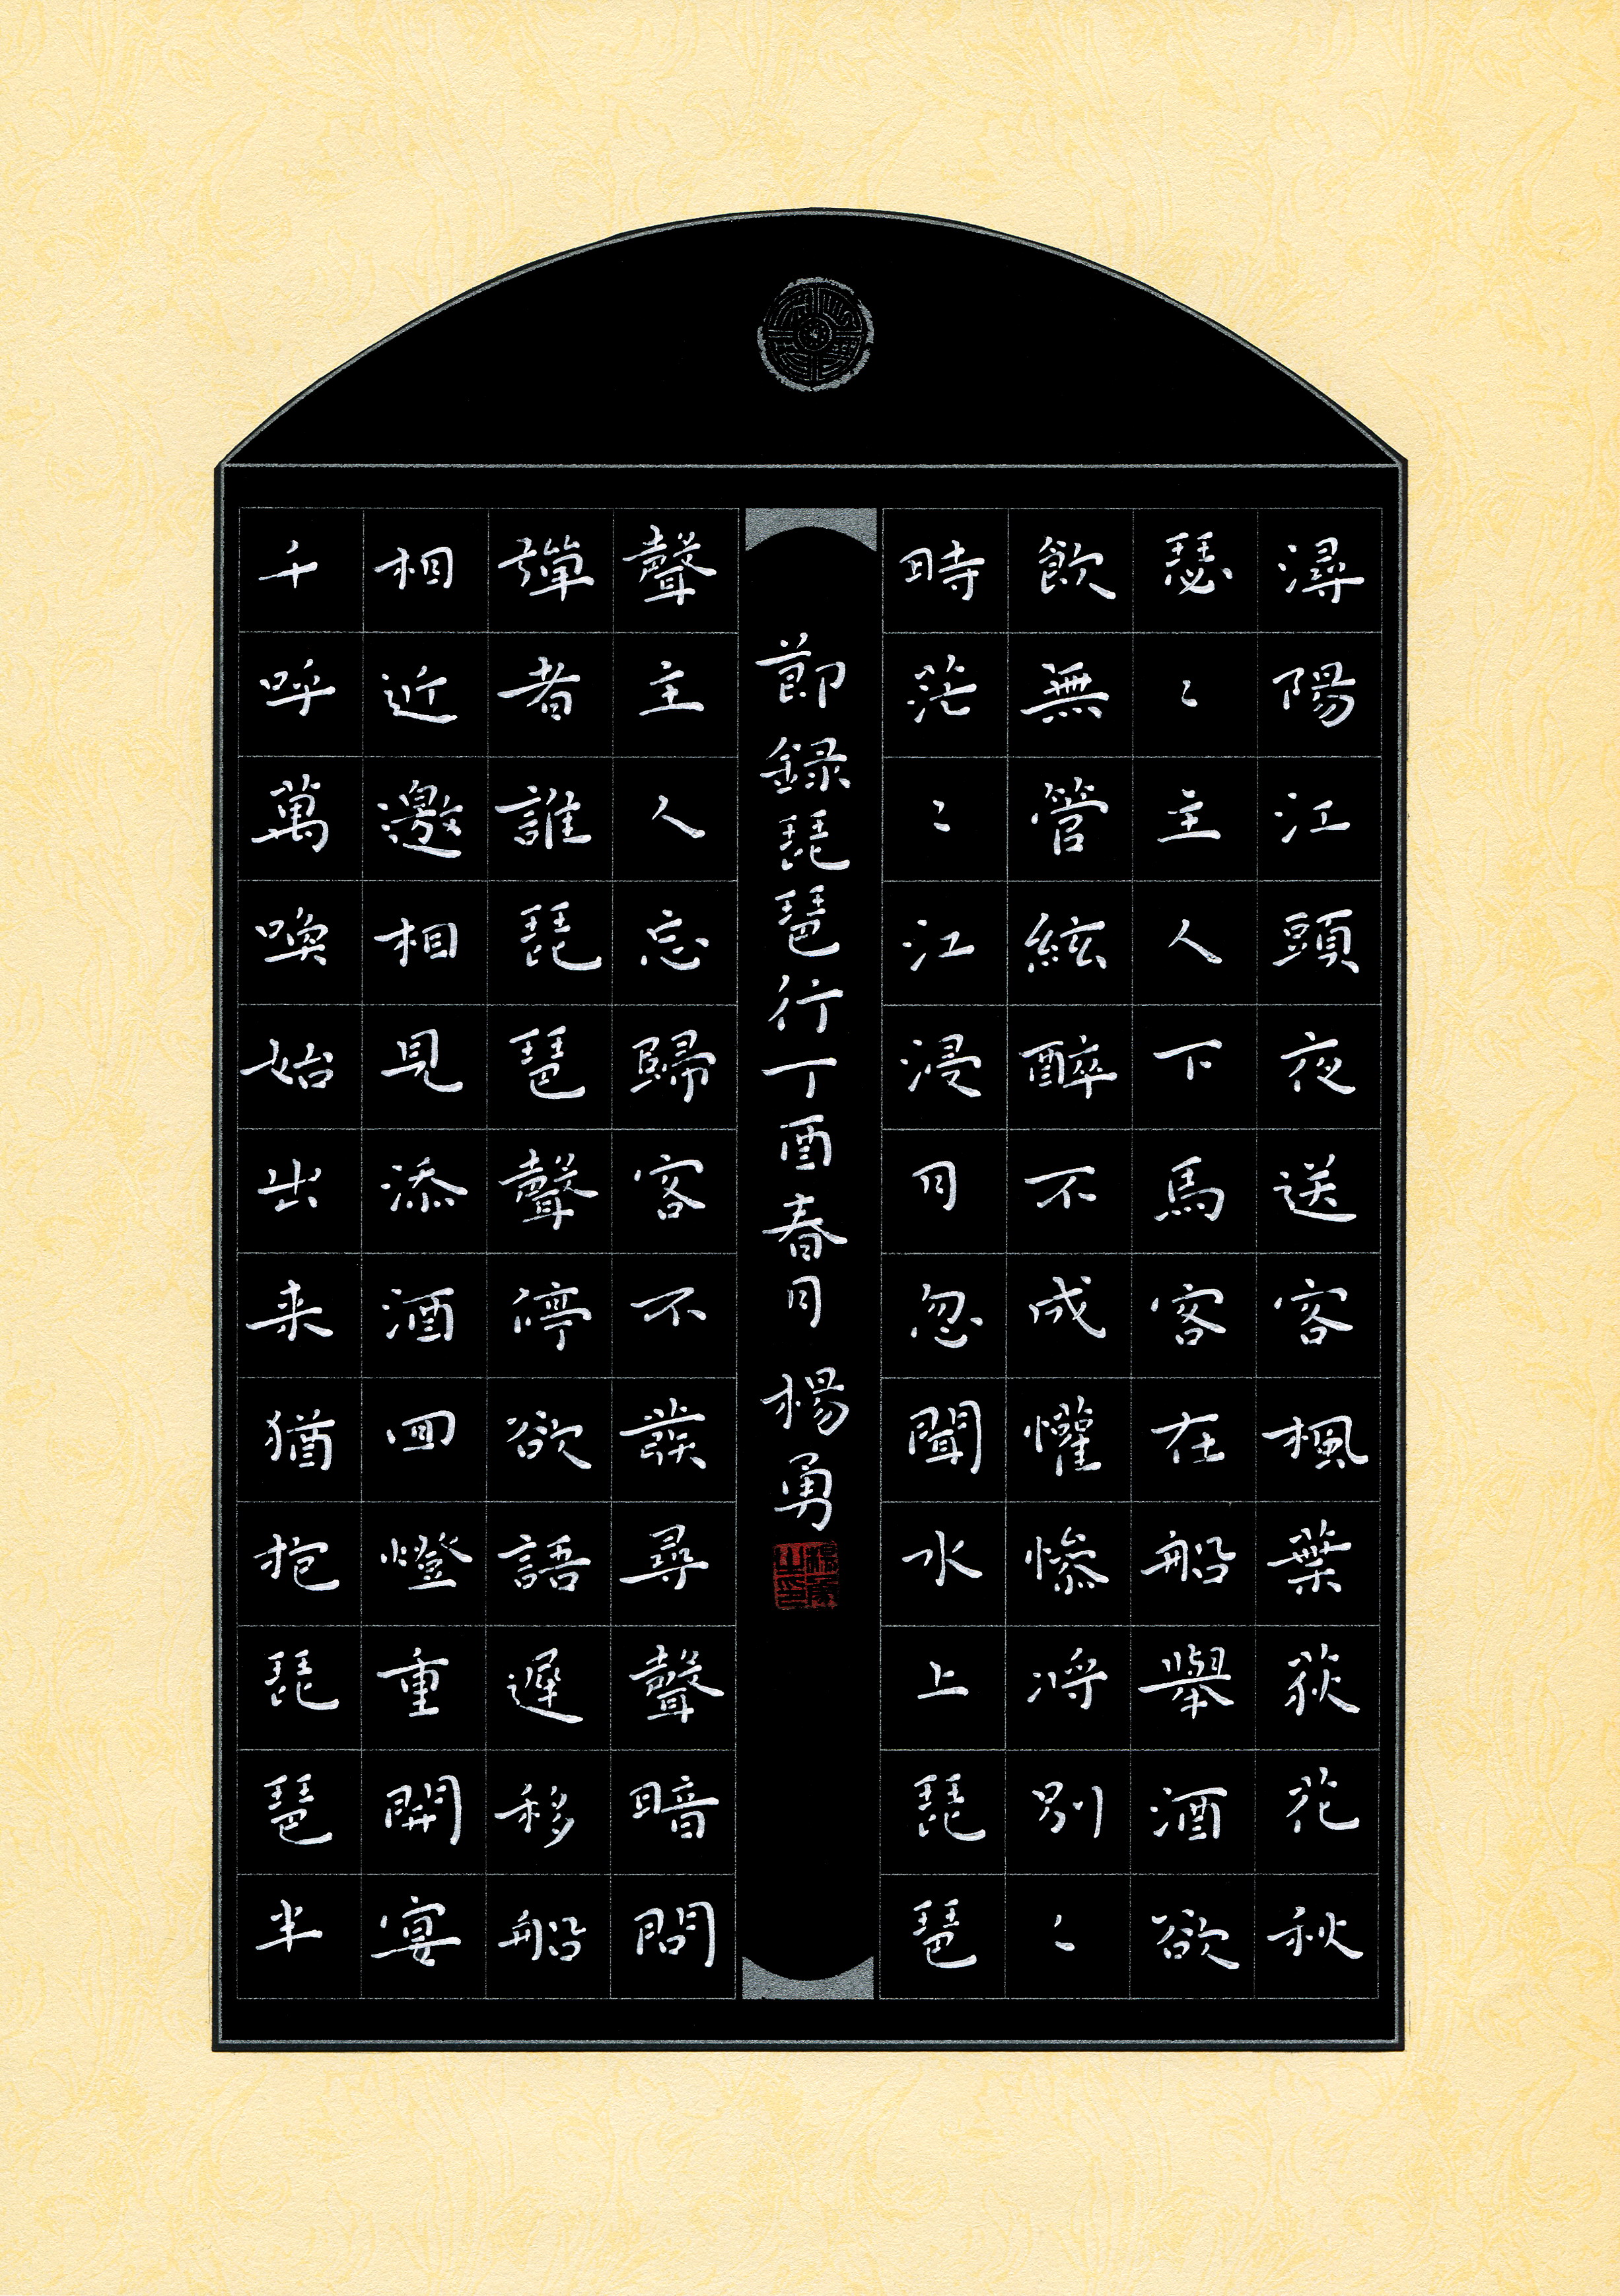 潯陽江頭夜送客楓葉荻花秋
瑟〻主人下馬客在船舉酒欲
飲無管絃醉不成懽慘將別〻
時茫〻江浸月忽聞水上琵琶
聲主人忘歸客不發尋聲暗問
彈者誰琵琶聲停欲語遲移船
相近邀相見添酒回燈重開宴
千呼萬喚始出来猶抱琵琶半
節録琵琶行丁酉春月 楊勇